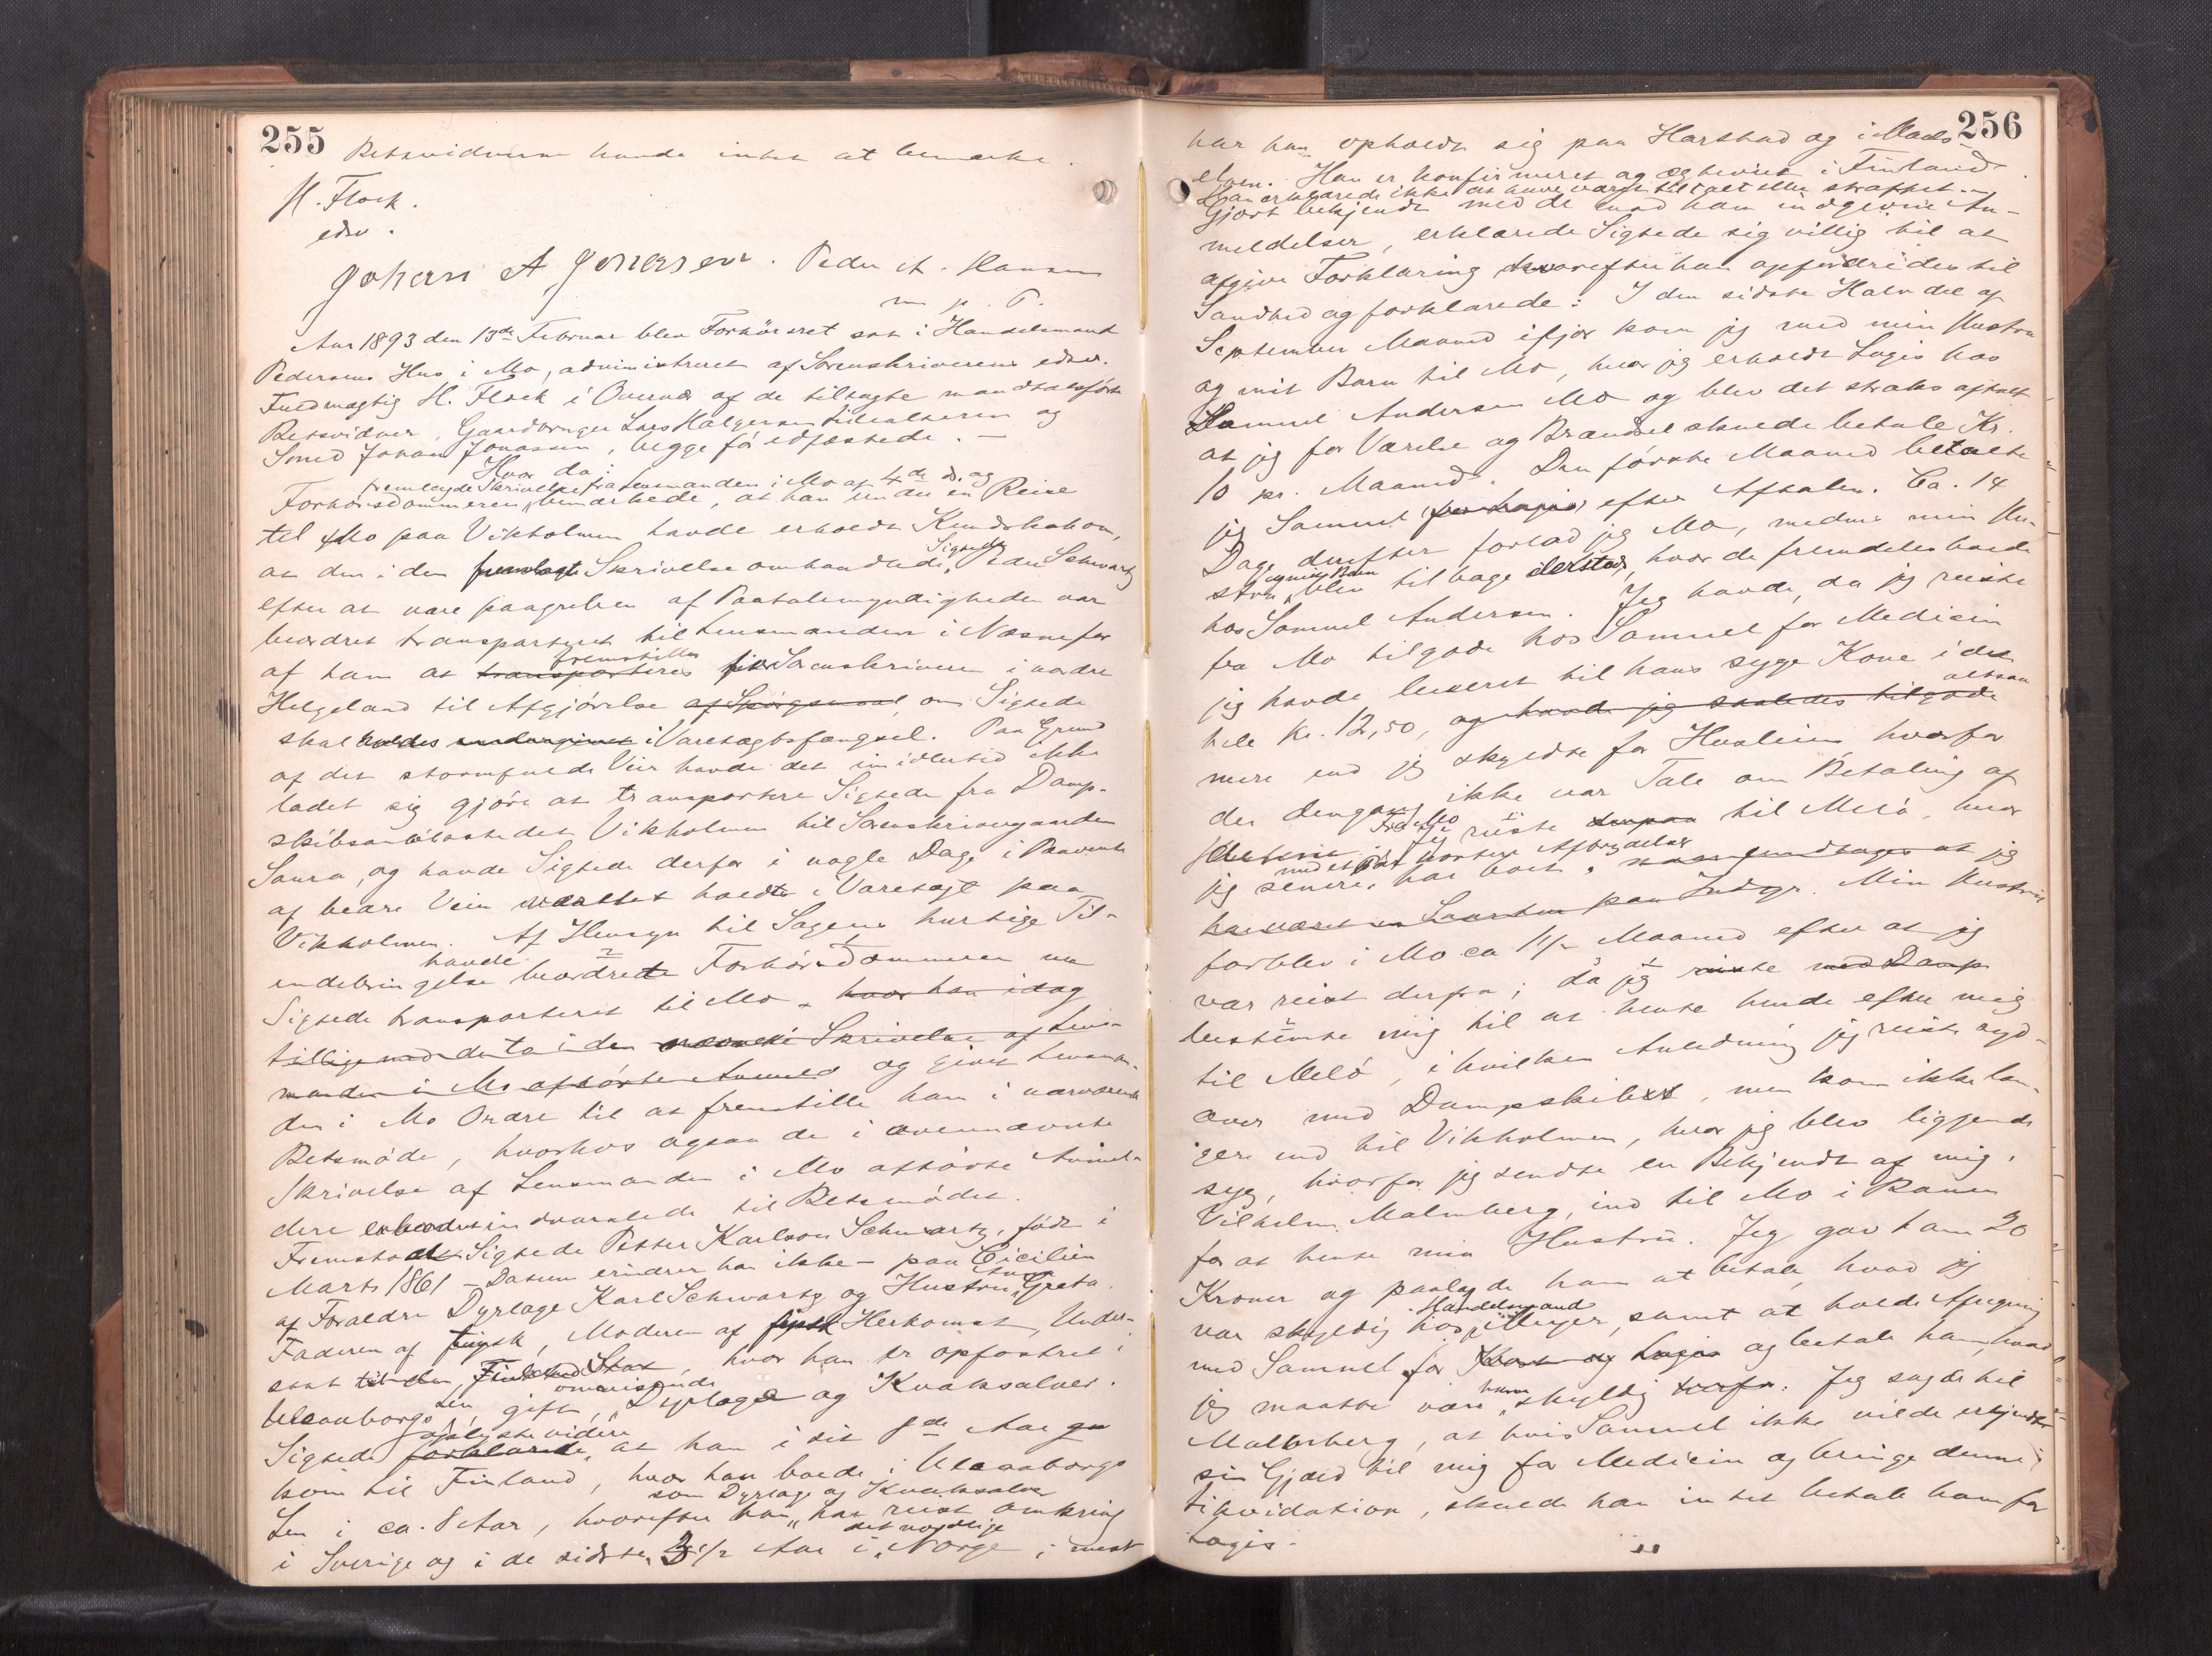 255
Retsvidnerne havde intet at bemærke.
H. Flock.
edsv.
Johan A Jonassen. Peder A. Hansen
m p. P.
Aar 1893 den 13de Februar blev Forhørsret sat i Handelsmand
Pedersens Hus i Mo, administreret af Sorenskriverens edsv.
Fuldmægtig H. Flock i Overvær af de tilsagte mandtalsførte
Retsvidner, Gaardbruger Lars Halgersen og
Smed Johan Jonassen, begge få edfæstede. –
Hvor da:
fremlagde Skrivelse fra Lensmanden i Mo af 4de ds. og
Forhørsdommeren bemærkede, at han under en Reise
til Mo paa Vikholmen havde erholdt Kundskab om,
at den i den fremlagte Skrivelse omhandlede Sigtede Peder Schwartz
efter at være paagreben af Paatalemyndigheden var
beordret transporteret til Lensmanden i Næsne for
af ham at transporteres fremstilles for Sorenskriveren i nordre
Helgeland til Afgjørelse af Spørgsmaal om Sigtede
skal holdes i Varetægtsfængsel. Paa Grund
af det stormfulde Veir havde det imidlertid ikke
ladet sig gjøre at transportere Sigtede fra Damp-
skibsanløbsstedet Vikholmen til Sorenskrivergaarden
Saura, og havde Sigtede derfor i nogle Dage i Paavente
af bedre Veir været holdt i Varetægt paa
Vikholmen. Af Hensyn til Sagens hurtige Til-
endebringelse havde beordrede Forhørsdommeren nu
Sigtede transporteret til Mo, hvor han idag
tillige med de to i den nævnte Skrivelse af Lens-
manden i Mo afhørte Anmeld og givet Lensman-
den i Mo Ordre til at fremstille ham i nærværende
Retsmøde, hvorhos ogsaa de i ovennævnte
Skrivelse af Lensmanden i Mo afhørte Anmel-
dere til Retsmødet.
Fremstod Sigtede Petter Karlson Schwartz, født i
Marts 1861 – Datum erindrer han ikke – paa Cicilien
af Forældre Dyrlæge Karl Schwartz og Hustru Anna Greta.
Faderen af finsk, Moderen af Herkomst, Under-
saat til den Finlands Stat, hvor han er opfostret i
Uleaaborgs Len, gift, omreisende Dyrlæge og Kvaksalver.
Sigtede forklarede oplyste videre at han i sit 8de Aar
kom til Finland, hvor han boede i Uleaaborgs
Len i ca. 8 Aar, hvorefter han som Dyrlæge og Kvaksalver har reist omkring
i Sverige og i de sidste 3 1/2 Aar i det nordlige Norge; mest
256
har han opholdt sig paa Harstad og i Maals-
elven. Han er konfirmeret og ægteviet i Finland.
Han erklærede ikke at have været tiltalt eller straffet. –
Gjort bekjendt med de mod ham indgivne An-
meldelser, erklærede Sigtede sig villig til at
afgive Forklaring hvorefter han opfordredes til
Sandhed og forklarede: I den sidste Halvdel af
September Maaned ifjor kom jeg med min Hustru
og mit Barn til Mo, hvor jeg erholdt Logis hos
Samuel Andersen Mo og blev det straks aftalt
at jeg for Værelse og Brændsel skulde betale Kr.
10 pr. Maaned. Den første Maaned betalte
jeg Samuel for Logis efter Aftalen. Ca. 14
Dage derefter forlod jeg Mo, medens min Hu-
stru og mit Barn blev tilbage dersteds, hvor de fremdeles boede
hos Samuel Andersen. Jeg havde, da jeg reiste
fra Mo tilgode hos Samuel for Medicin
jeg havde leveret til hans syge Kone i det
hele Kr. 12,50, og havde jeg saaledes tilgode altsaa
mere end jeg skyldte for Husleien hvorfor
der dengang ikke var Tale om Betaling af
Fra Mo reiste jeg til Melø, hvor
jeg senere med et Par kortere Afbrydelser har boet,
Min Hustru
forblev i Mo ca 1 1/2 Maaned efter at jeg
var reist derfra; da jeg reiste med Damp
bestemte mig til at hente hende efter mig
til Melø, i hvilken Anledning jeg reiste syd-
over med Dampskibet, men kom ikke læn-
gere end til Vikholmen, hvor jeg blev liggende
syg, hvorfor jeg sendte en Bekjendt af mig,
Vilhelm Malmberg, ind til Mo i Ranen
for at hente min Hustru. Jeg gav ham 20
Kroner og paalagde ham at betale, hvad jeg
var skyldig hos Handelsmand Meyer, samt at holde Afregning
med Samuel for Kost og Logis og betale ham, hvad
jeg maatte være ham skyldig derfor. Jeg sagde til
Malmberg, at hvis Samuel ikke vilde erkjende
sin Gjæld til mig for Medicin og bringe denne i
Likvidation, skulde han intet betale ham for
Logis.